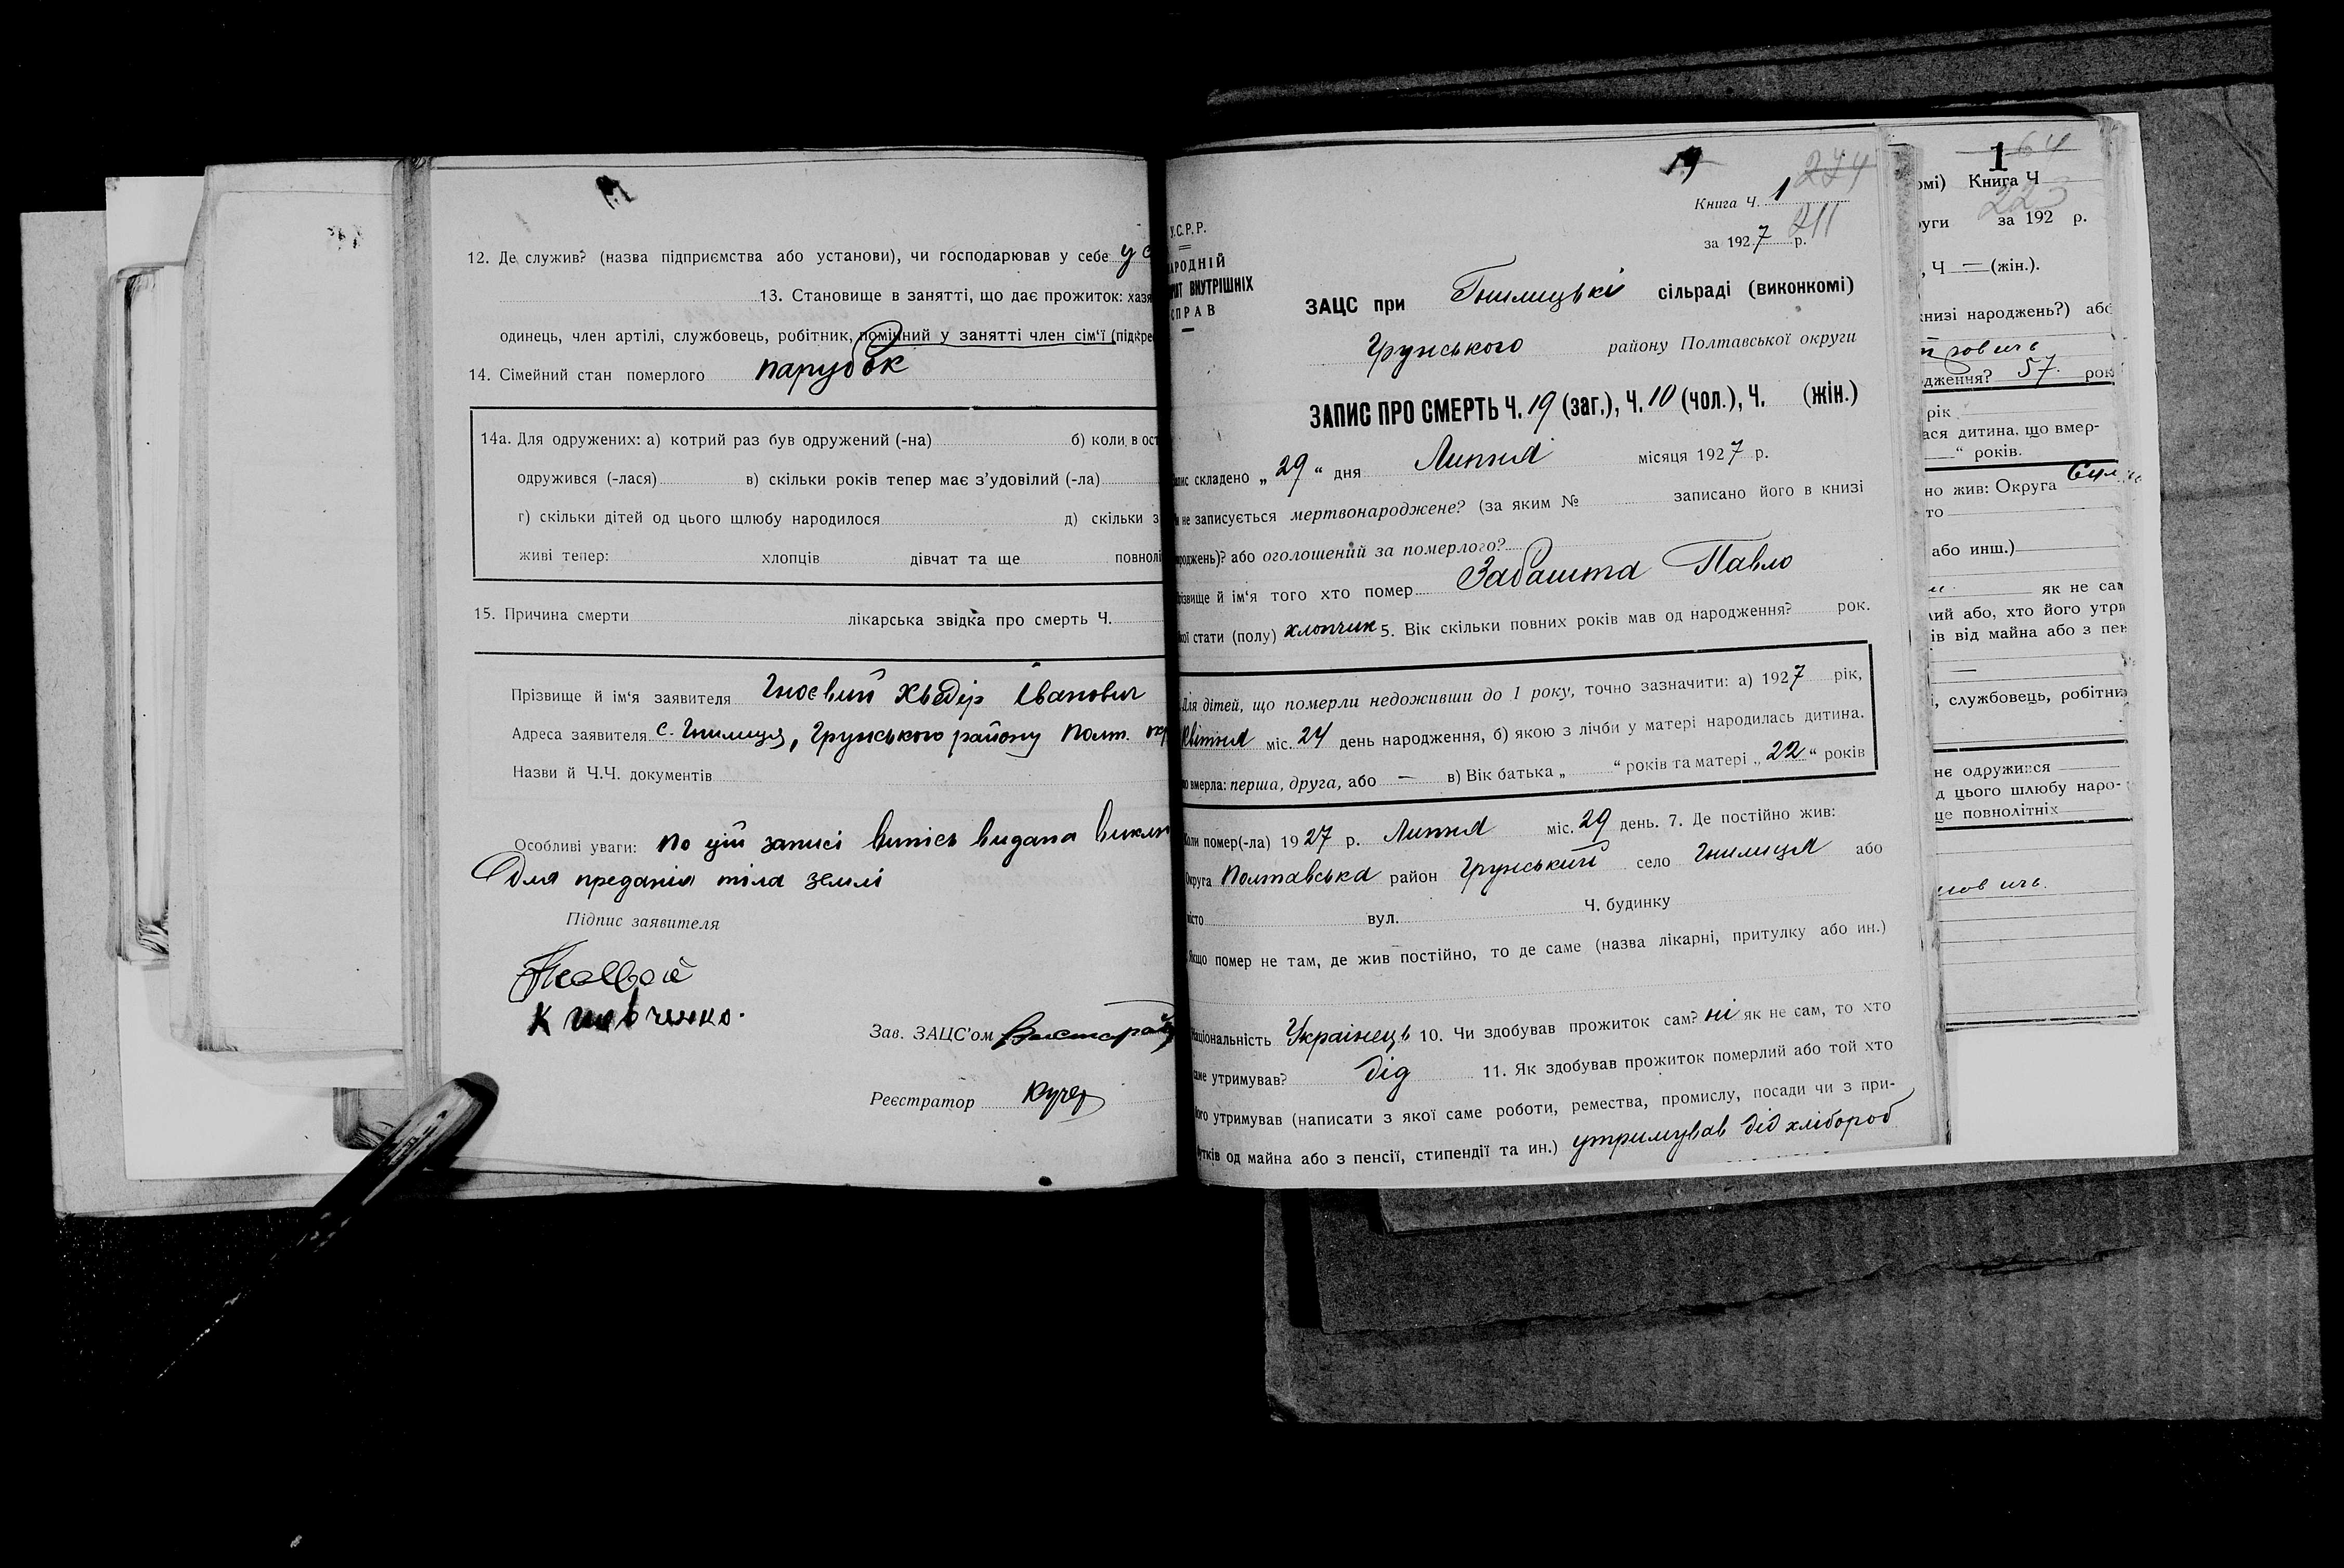 12. Де служив? (назва підприємства або установи), чи господарював у себе у с
13. Становище в занятті, що дає прожиток: хазя
одинець, член артілі, службовець, робітник, помічний у занятті член сім'ї (підкре
14. Сімейний стан померлого парубок
14а. Для одружених: а) котрий раз був одружений (-на) б) коли в ост
одружився (-лася) в) скільки років тепер має з'удовілий (-ла)
г) скільки дітей од цього щлюбу народилося д) скільки з
живі тепер: хлопців дівчат та ще повнолі
15. Причина смерти лікарська звідка про смерть Ч.
Прізвище й ім'я заявителя Гноєвий Хведір Іванович
Адреса заявителя с. Гнилиця, Грунського району Полт. окр
Назви й Ч.Ч. документів
Особливі уваги: по цій записі випісь видана виклю
Для преданія тіла землі
Підпис заявителя
К Шевченко.
Зав. ЗАЦС'ом
Реєстратор Кучер
19 274
Книга Ч. 1
211
за 1927 р.
У.С.Р.Р.
АРОДНІЙ
ІЯТ ВНУТРІШНІХ
СПРАВ
ЗАЦС при Гнилицькі сільраді (виконкомі)
Грунського району Полтавської округи
ЗАПИС ПРО СМЕРТЬ Ч. 19 (заг.), Ч. 10 (чол.), Ч. (жін.)
апис складено „29“ дня Липня місяця 1927 р.
и не записується мертвонароджене? (за яким № записано його в книзі
ароджень)? або оголошений за померлого?
різвище й ім'я того хто помер Забашта Павло
кої стати (полу) хлопчик 5. Вік скільки повних років мав од народження? рок.
Для дітей, що померли недоживши до 1 року, точно зазначити: а) 1927 рік,
Квітня міс. 24 день народження, б) якою з лічби у матері народилась дитина.
що вмерла: перша, друга, або — в) Вік батька „ “ років та матері „22“ років
Коли помер(-ла) 1927 р. Липня міс. 29 день. 7. Де постійно жив:
Округа Полтавська район Грунський село Гнилиця або
місто вул. Ч. будинку
Якщо помер не там, де жив постійно, то де саме (назва лікарні, притулку або ин.)
Національність Українець 10. Чи здобував прожиток сам? ні як не сам, то хто
саме утримував? дід 11. Як здобував прожиток померлий або той хто
його утримував (написати з якої саме роботи, ремества, промислу, посади чи з при-
бутків од майна або з пенсії, стипендії та ин.) утримував дід хлібороб
1 64
омі) Книга Ч
223
уги за 192 р.
, Ч — (жін.).
книзі народжень?) або
дження? 57 рок
рік
ася дитина, що вмер-
—“ років.
но жив: Округа
то
або инш.)
як не сам
ий або, хто його утри
ів від майна або з пен
—
і, службовець, робітни
не одружився
д цього шлюбу наро-
ще повнолітніх